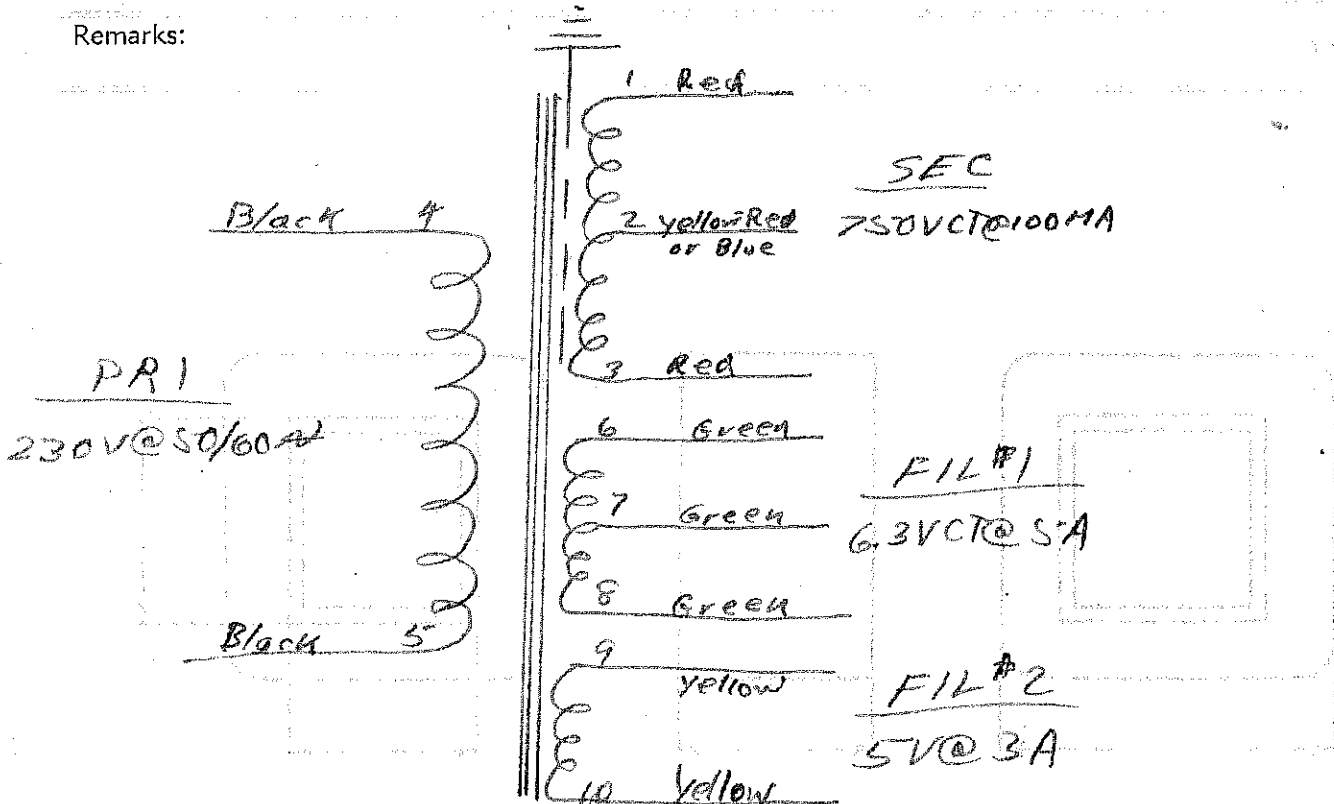 Remarks:
1 Red
SEC
Black 4
2 yellow-Red
or Blue
750VCT@100MA
3 Red
PRI
230V@50/60~
6 Green
FIL #1
7 Green
6.3VCT@5A
8 Green
Black 5
9
yellow
FIL #2
5V@3A
10 yellow